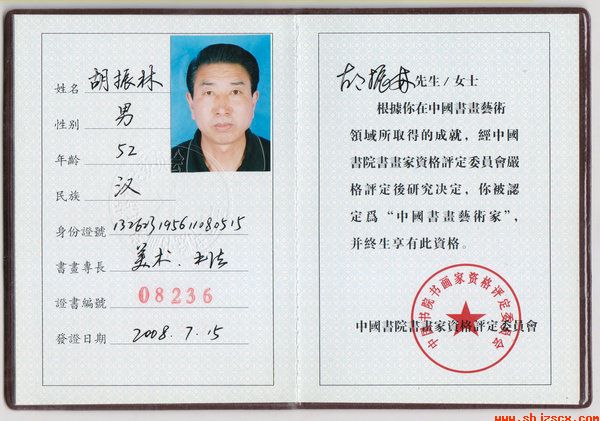 姓名 胡振林
性别 男
年齡 52
民族 汉
身份證號 132623195611080515
書畫專長 美术、书法
證書編號 08236
發證日期 2008.7.15
胡振林 先生/女士
根據你在中國書畫藝術
領域所取得的成就，經中國
書院書畫家資格評定委員會嚴
格評定後研究决定，你被認
定爲“中國書畫藝術家”，
并終生享有此資格。
中国书院书画家资格评定委员会
中國書院書畫家資格評定委員會
www.shjzscx.com